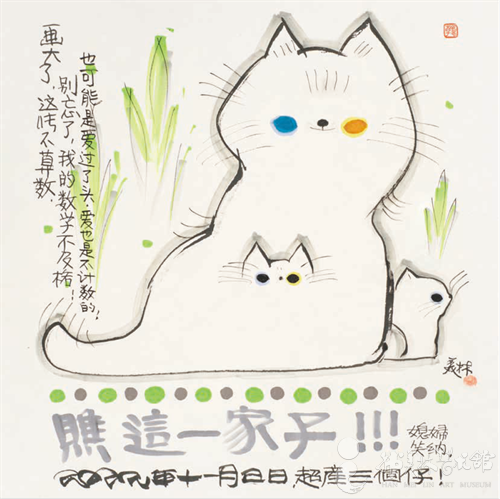 画大了，这张不算数，
别忘了，我的数学不及格！！
也可能是爱过了头，爱也是不计数的！
美林
瞧這一家子!!!
媳婦
笑纳，
年十一月日，超產三個仔！
HAN MEI LIN ART MUSEUM